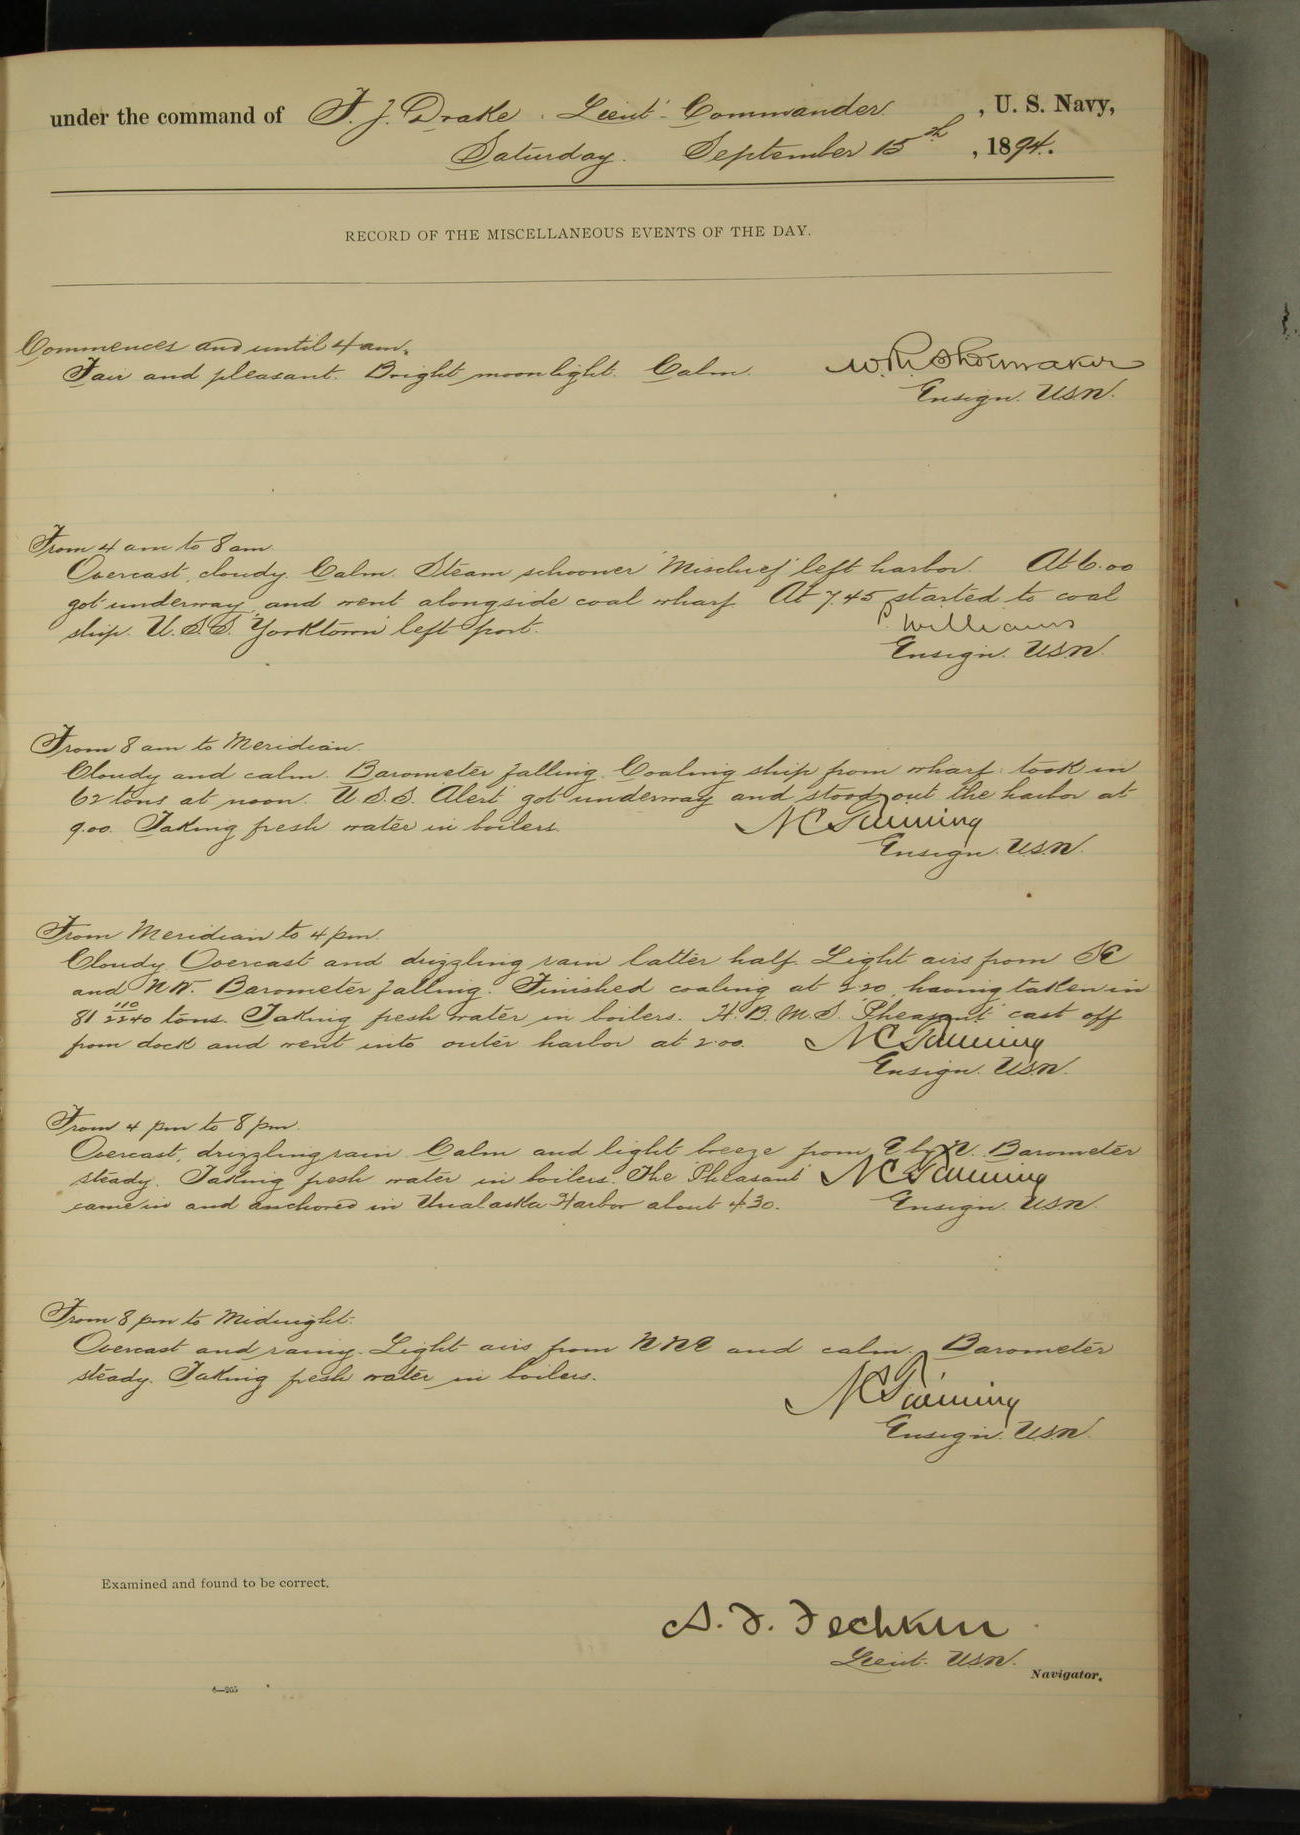 under the command of F. J. Drake. Lieut-Commander, U. S. Navy,
Saturday. September 15th, 1894.
RECORD OF THE MISCELLANEOUS EVENTS OF THE DAY.
Commences and until 4 am.
Fair and pleasant. Bright moonlight. Calm. W. R. Shoemaker
Ensign. USN.
From 4 am to 8 am
Overcast, cloudy. Calm. Steam schooner "Mischief" left harbor. At 6.00
got underway and went alongside coal wharf. At 7.45 started to coal
ship. U.S.S. "Yorktown" left port. P. Williams
Ensign. USN.
From 8 am to Meridian.
Cloudy and calm. Barometer falling. Coaling ship from wharf: took in
62 tons at noon. U.S.S. "Alert" got underway and stood out the harbor at
9.00. Taking fresh water in boilers.
Ensign. USN.
From Meridian to 4 pm.
Cloudy. Overcast and drizzling rain latter half. Light airs from SE
and NW. Barometer falling. Finished coaling at 2.20, having taken in
81 110/2240 tons. Taking fresh water in boilers. H.B.M.S. "Pheasant" cast off
from dock and went into outer harbor at 2.00.
Ensign. USN.
From 4 pm to 8 pm.
Overcast, drizzling rain. Calm and light breeze from E by N. Barometer
steady. Taking fresh water in boilers. The "Pheasant"
came in and anchored in Unalaska Harbor about 4.30.
Ensign. USN.
From 8 pm to Midnight.
Overcast and rainy. Light airs from NNE and calm. Barometer
steady. Taking fresh water in boilers.
Ensign. USN.
Examined and found to be correct.
A. F. Fechteler
Lieut. USN.
Navigator.
6—205